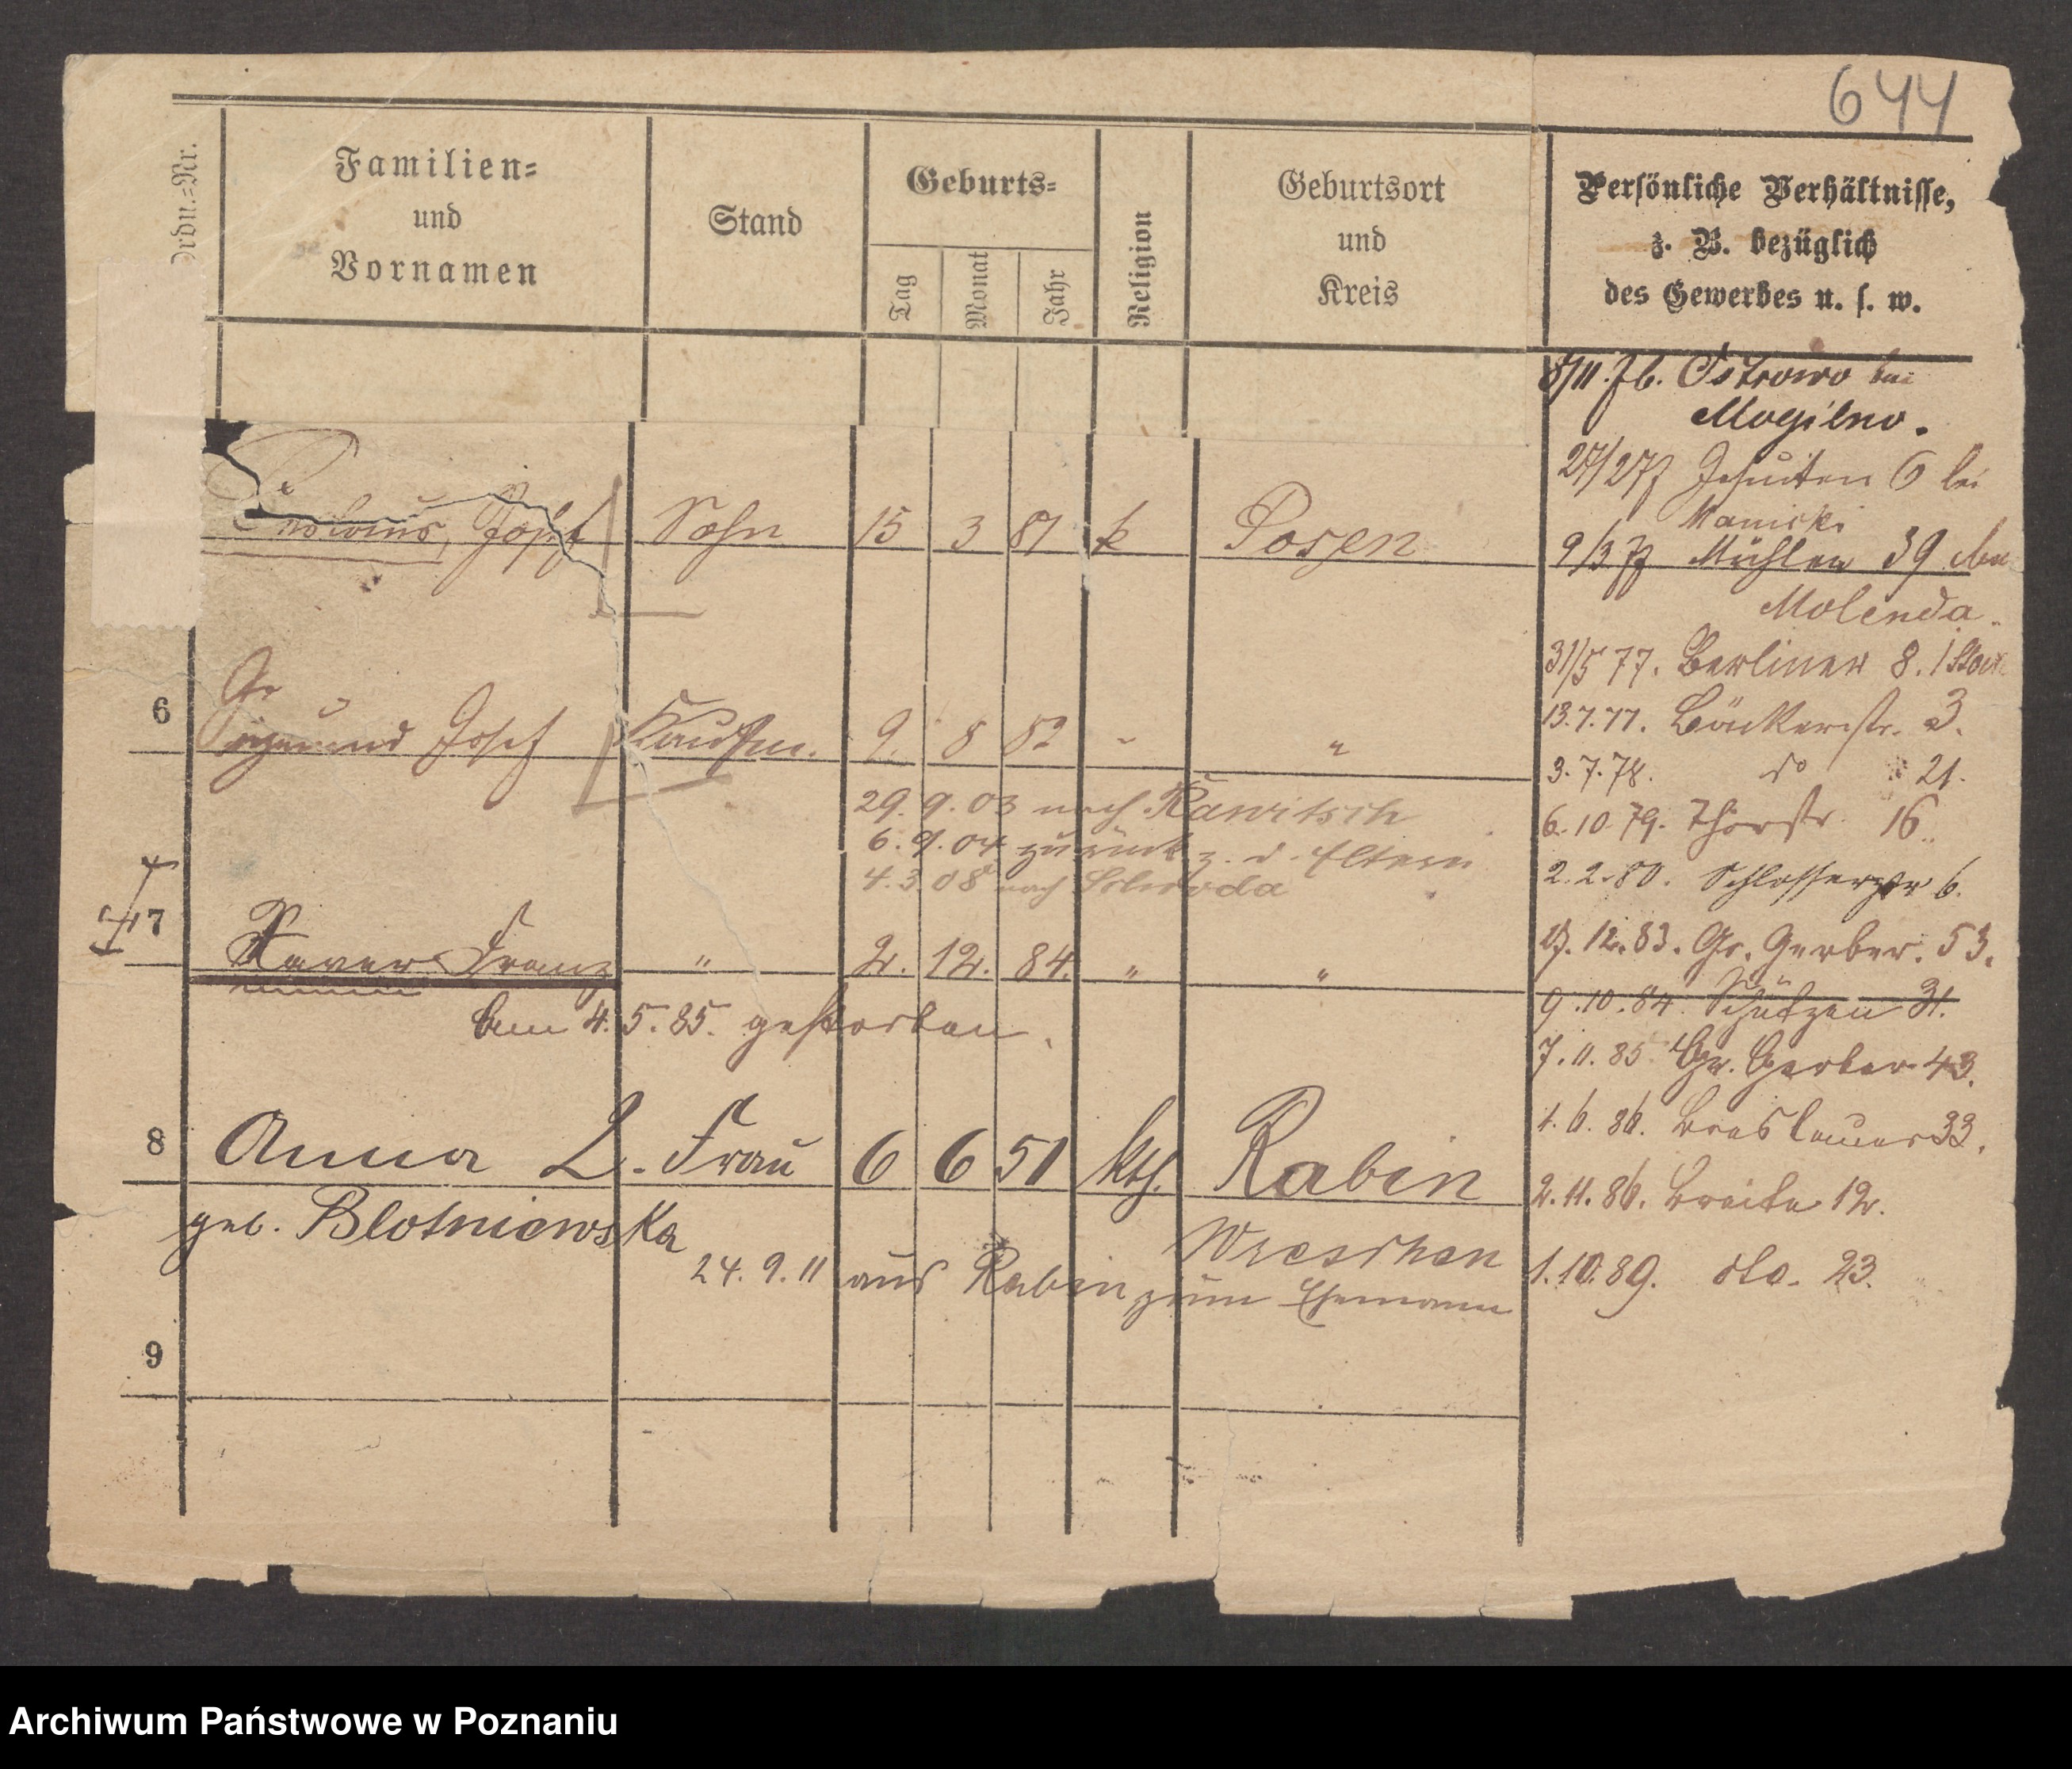 644
Ordn.=Nr.
Familien=
und
Vornamen
Stand
Geburts=
Tag
Monat
Jahr
Religion
Geburtsort
und
Kreis
Persönliche Verhältnisse,
z. B. bezüglich
des Gewerbes u. s. w.
Josef Sohn 15 3 81 k Posen
6 Josef Kaufm. 9. 8 82 " "
29. 9. 03 nach Rawitsch
6. 9. 04 zurück z. d. Eltern
4. 3 08 nach Schroda
7 Xaver Franz " 2. 12. 84. " "
Am 4. 5. 85. gestorben.
8 Anna L. Frau 6 6 51 kth. Rabin
geb. Blotniewska
Wreschen
24. 9. 11 aus Rabin zum Ehemann
9
8/11. 76. Ostrowo bei
Mogilno.
Jesuiten 6 bei
9/3 77 Mühlen 39 bei
Molenda.
31/5 77. Berliner 8. I Stock
13. 7. 77. Bäckerstr. 3.
3. 7. 78. do 21.
6. 10. 79. Thorstr. 16.
2. 2. 80. Schlosserstr 6.
12. 83. Gr. Gerber. 53.
9. 10. 84. Schützen 31.
7. 11. 85 Gr. Gerber 43.
1. 6. 86. Breslauer 33.
2. 11. 86. Breite 12.
1. 10. 89. dto. 23.
Archiwum Państwowe w Poznaniu